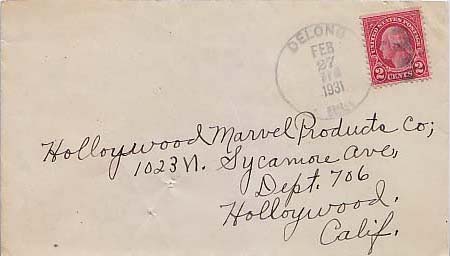 DELONG
FEB
27
1931
UNITED STATES POSTAGE
2 CENTS 2
Holloywood Marvel Products Co;
1023 N. Sycamore Ave,
Dept. 706
Holloywood.
Calif.